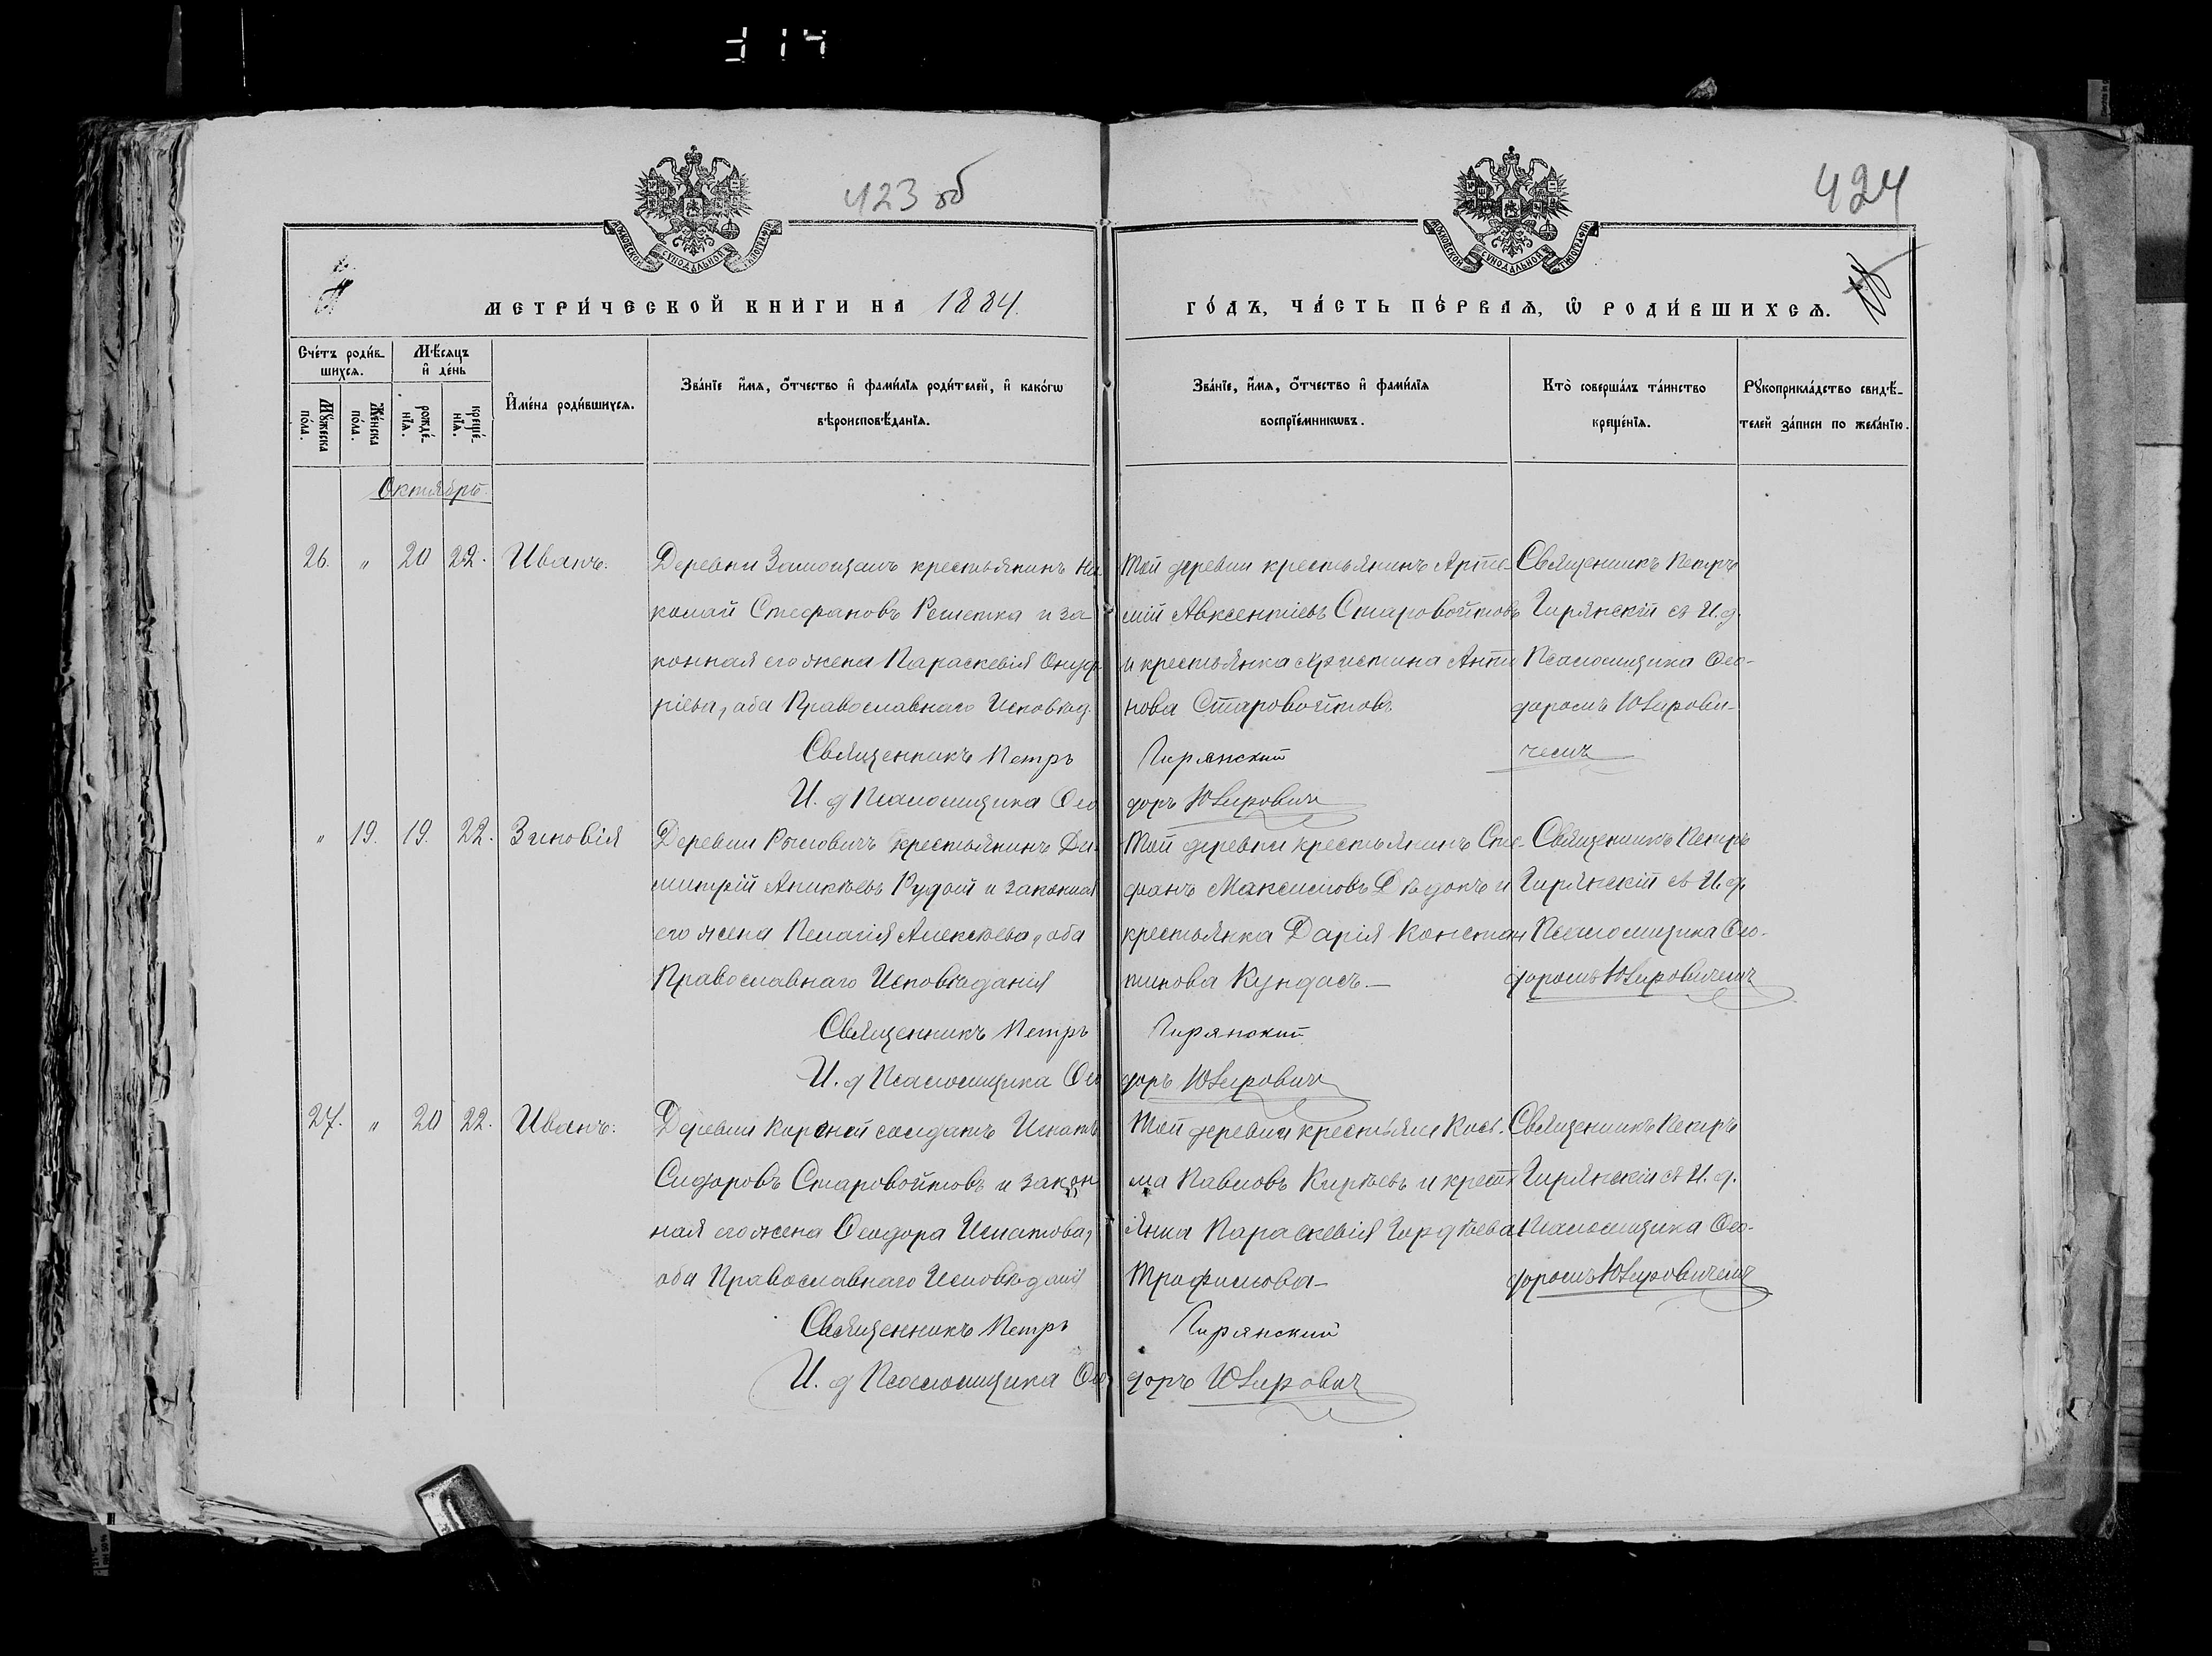 314
423 об
424
МОСКОВСКОЙ СѴНОДАЛЬНОЙ ТИПОГРАФІИ
МОСКОВСКОЙ СѴНОДАЛЬНОЙ ТИПОГРАФІИ
МЕТРИ́ЧЕСКОЙ КНИГИ НА 1884.
ГО́ДЪ, ЧА́СТЬ ПЕ́РВАѦ, Ѽ РОДИ́ВШИХСѦ.
Сче́тъ роди́в-
шихсѧ.
Мꙋ́жеска по́ла.
Же́нска по́ла.
Мѣ́сѧцъ
и҆ де́нь
рожде́-нїѧ.
креще́-нїѧ.
И҆мена̀ роди́вшихсѧ.
Зва́нїе и҆́мѧ, ѻ҆́тчество и҆ фами́лїѧ роди́телей, и҆ како́гѡ
вѣроисповѣ́данїѧ.
Зва́нїе, и҆́мѧ, ѻ҆́тчество и҆ фами́лїѧ
воспрїе́мникѡвъ.
Кто̀ соверша́лъ та́инство
креще́нїѧ.
Рꙋкоприкла́дство свидѣ́-
телей за́писи по жела́нїю.
Октябрь
26. " 20 22. Иванъ.
Деревни крестьянинъ Ни
колай Стефановъ Решетка и за
конная его жена Параскевія Онуф
ріева, оба Православнаго Исповѣд.
Священникъ Петръ
И. д Псаломщика Ѳео
Той деревни крестьянинъ Арте-
мій Авксентіевъ Старовойтовъ
и крестьянка Христина Анти
нова Старовойтовъ
Пирянский
доръ Юзирович
Священникъ Петръ
Пирянскій съ И. д.
Псаломщика Ѳео-
доромъ Юзирови-
чемъ
" 19. 19. 22. Зиновія
Деревни крестьянинъ Ди-
митрій Аникѣевъ Рудой и законная
его жена Пелагія Алексѣева, оба
Православнаго Исповѣданія
Священникъ Петръ
И. д Псаломщика Ѳео
Той деревни крестьянинъ Сте-
фанъ Максимовъ Дѣдокъ и
крестьянка Дарія Констан
тинова Кундасъ
Пирянский
доръ Юзирович
Священникъ Петръ
Пирянскій съ И. д.
Псаломщика Ѳео-
доромъ Юзировичемъ
27. " 20 22. Иванъ.
Деревни Корсней солдатъ Игнатъ
Сидоровъ Старовойтовъ и закон
ная его жена Ѳеодора Игнатова,
оба Православнаго Исповѣданія
Священникъ Петръ
И. д Псаломщика Ѳео
Той деревни крестьян Кось-
ма Павловъ Кирѣевъ и крестъ
янка Параскевія Гордѣева
Трофимова
Пирянский
доръ Юзирович
Священникъ Петръ
Пирянскій съ И. д.
Псаломщика Ѳео-
доромъ Юзировичемъ